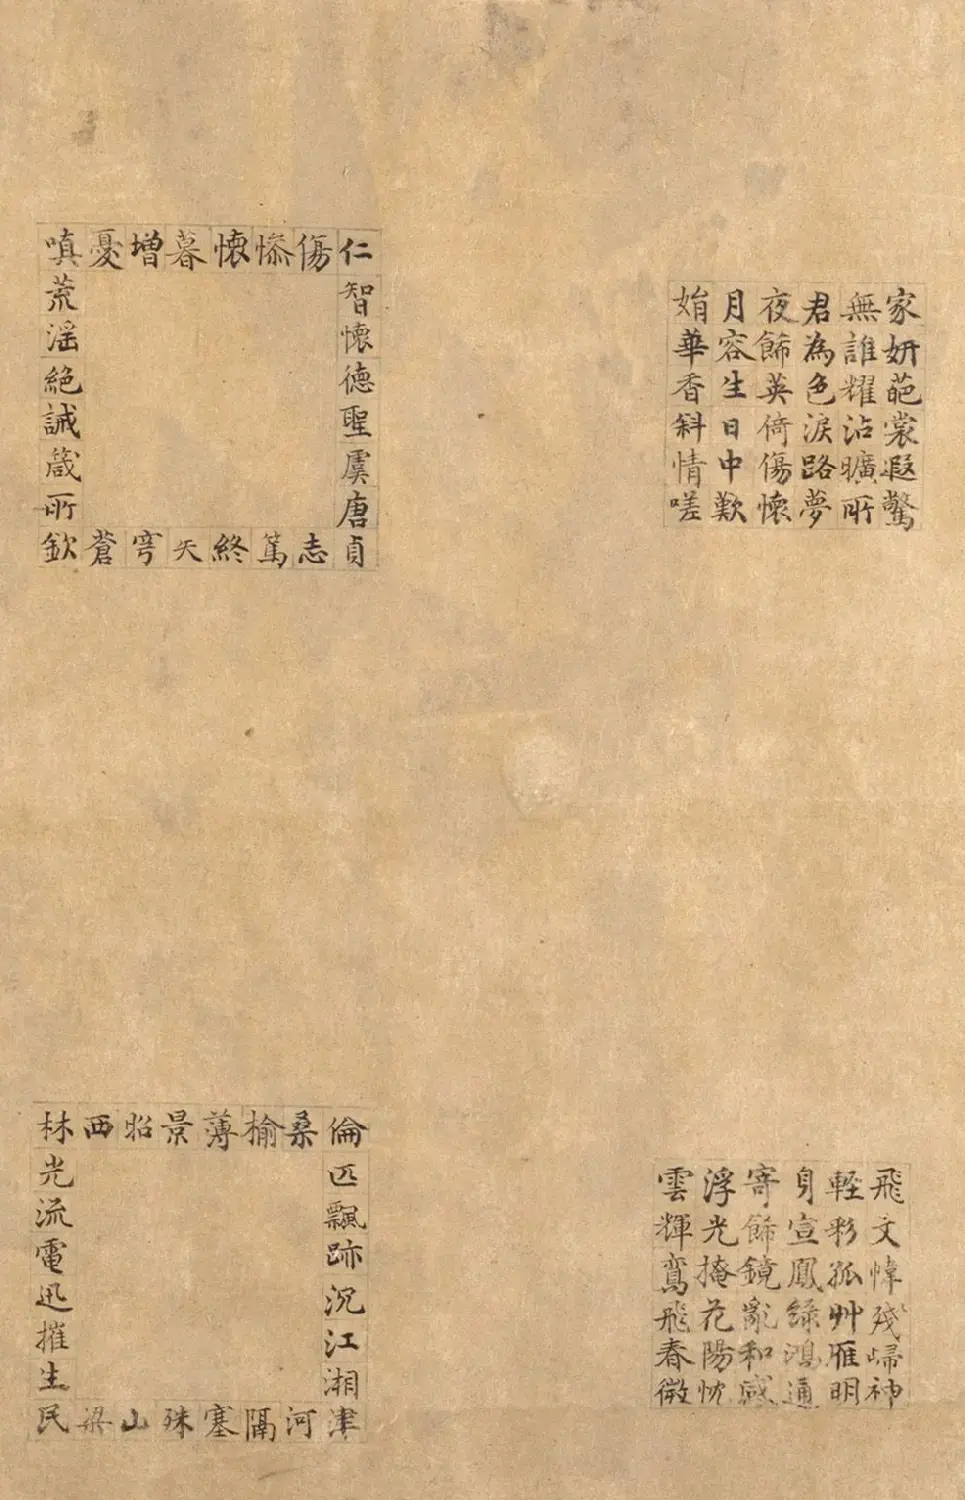 家妍葩裳遐驚
無誰耀沾曠所
君為色淚路夢
夜飾英倚傷懷
月容生日中歎
華香斜情嗟
仁智懷德聖虞唐貞
志篤終天穹蒼
傷慘懷暮增憂
嗔荒淫絕誡箴所欽
飛文帷殘歸神
輕彩孤艸雁明
身宣鳳綠鴻通
寄飾鏡亂和感
浮光掩花陽忱
雲輝鸞飛春微
倫匹飄跡沉江湘津
河隔塞殊山梁
桑榆薄景昭西
林光流電迅摧生民